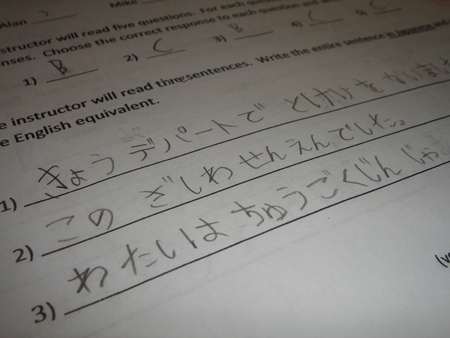 Alan 3 Mike
structor will read five questions. For each question and
nses. Choose the correct response to each question and
1) B 2) C 3) B 4) C 5) C
e instructor will read three sentences. Write the entire sentence in Japanese and
e English equivalent.
1) きょう デパートで とけいを かいまし
2) この ざしわ せんえんでした。
3) わたいは ちゅうごくじん じゃ